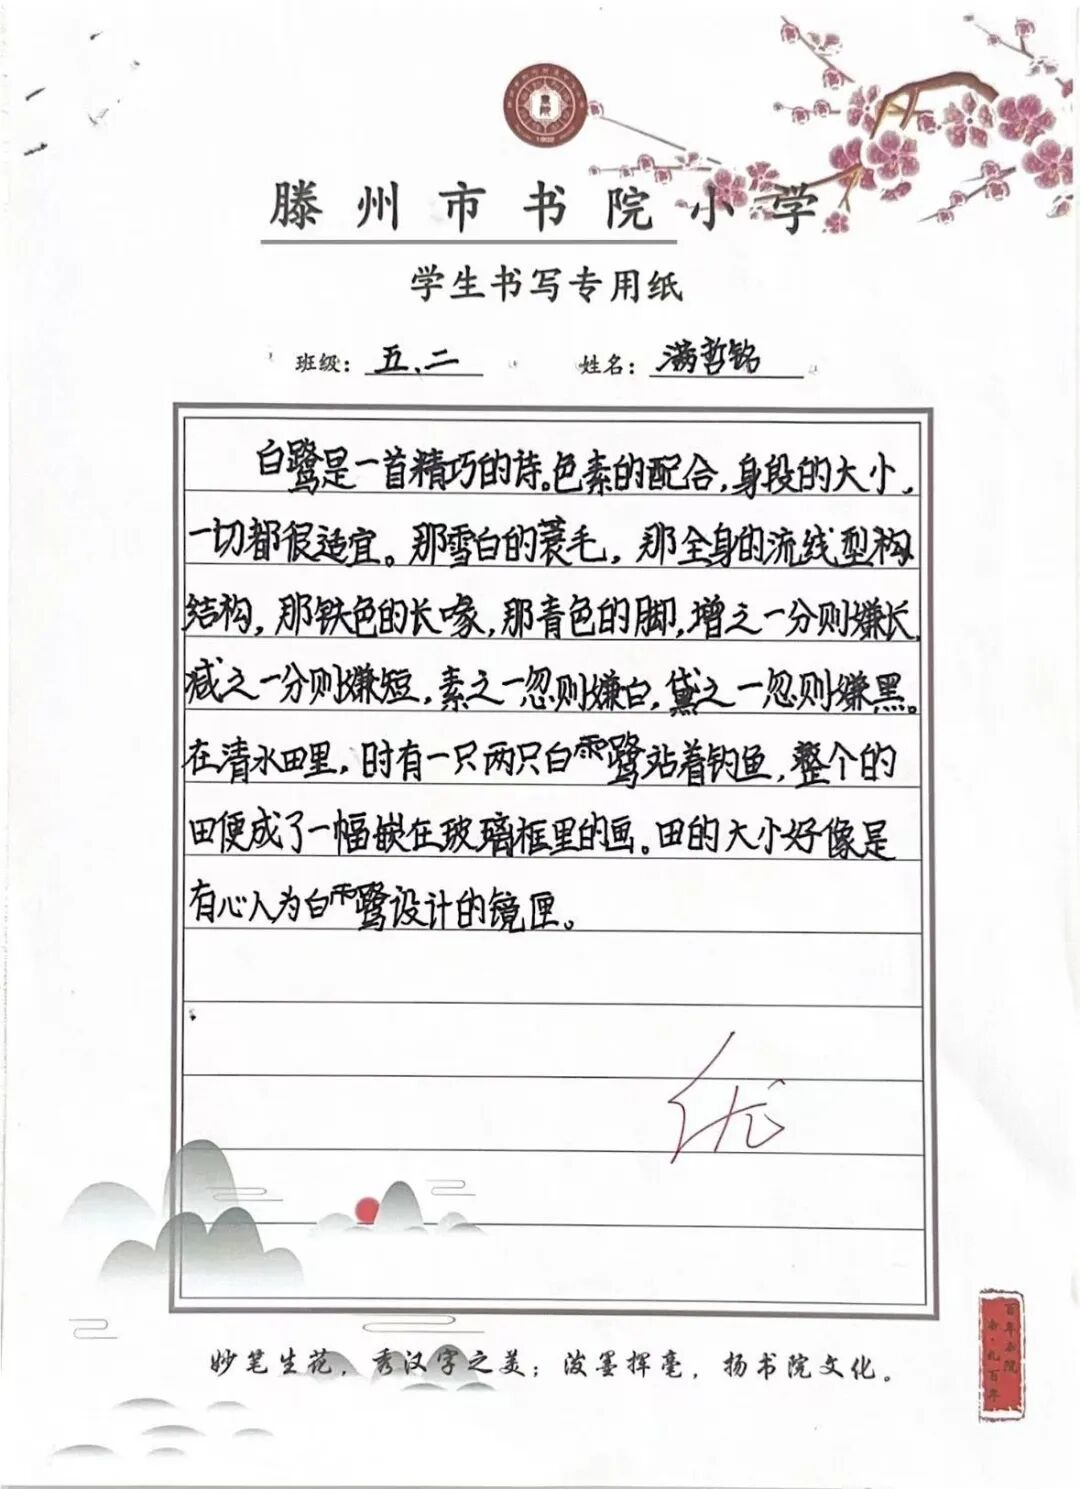 滕州市书院小学
学生书写专用纸
班级：五.二 姓名：满哲铭
白鹭是一首精巧的诗。色素的配合，身段的大小，
一切都很适宜。那雪白的蓑毛，那全身的流线型构
结构，那铁色的长喙，那青色的脚，增之一分则嫌长，
减之一分则嫌短，素之一忽则嫌白，黛之一忽则嫌黑。
在清水田里，时有一只两只白鹭站着钓鱼，整个的
田便成了一幅嵌在玻璃框里的画。田的大小好像是
有心人为白鹭设计的镜匣。
优
妙笔生花，秀汉字之美；泼墨挥毫，扬书院文化。
百年书院